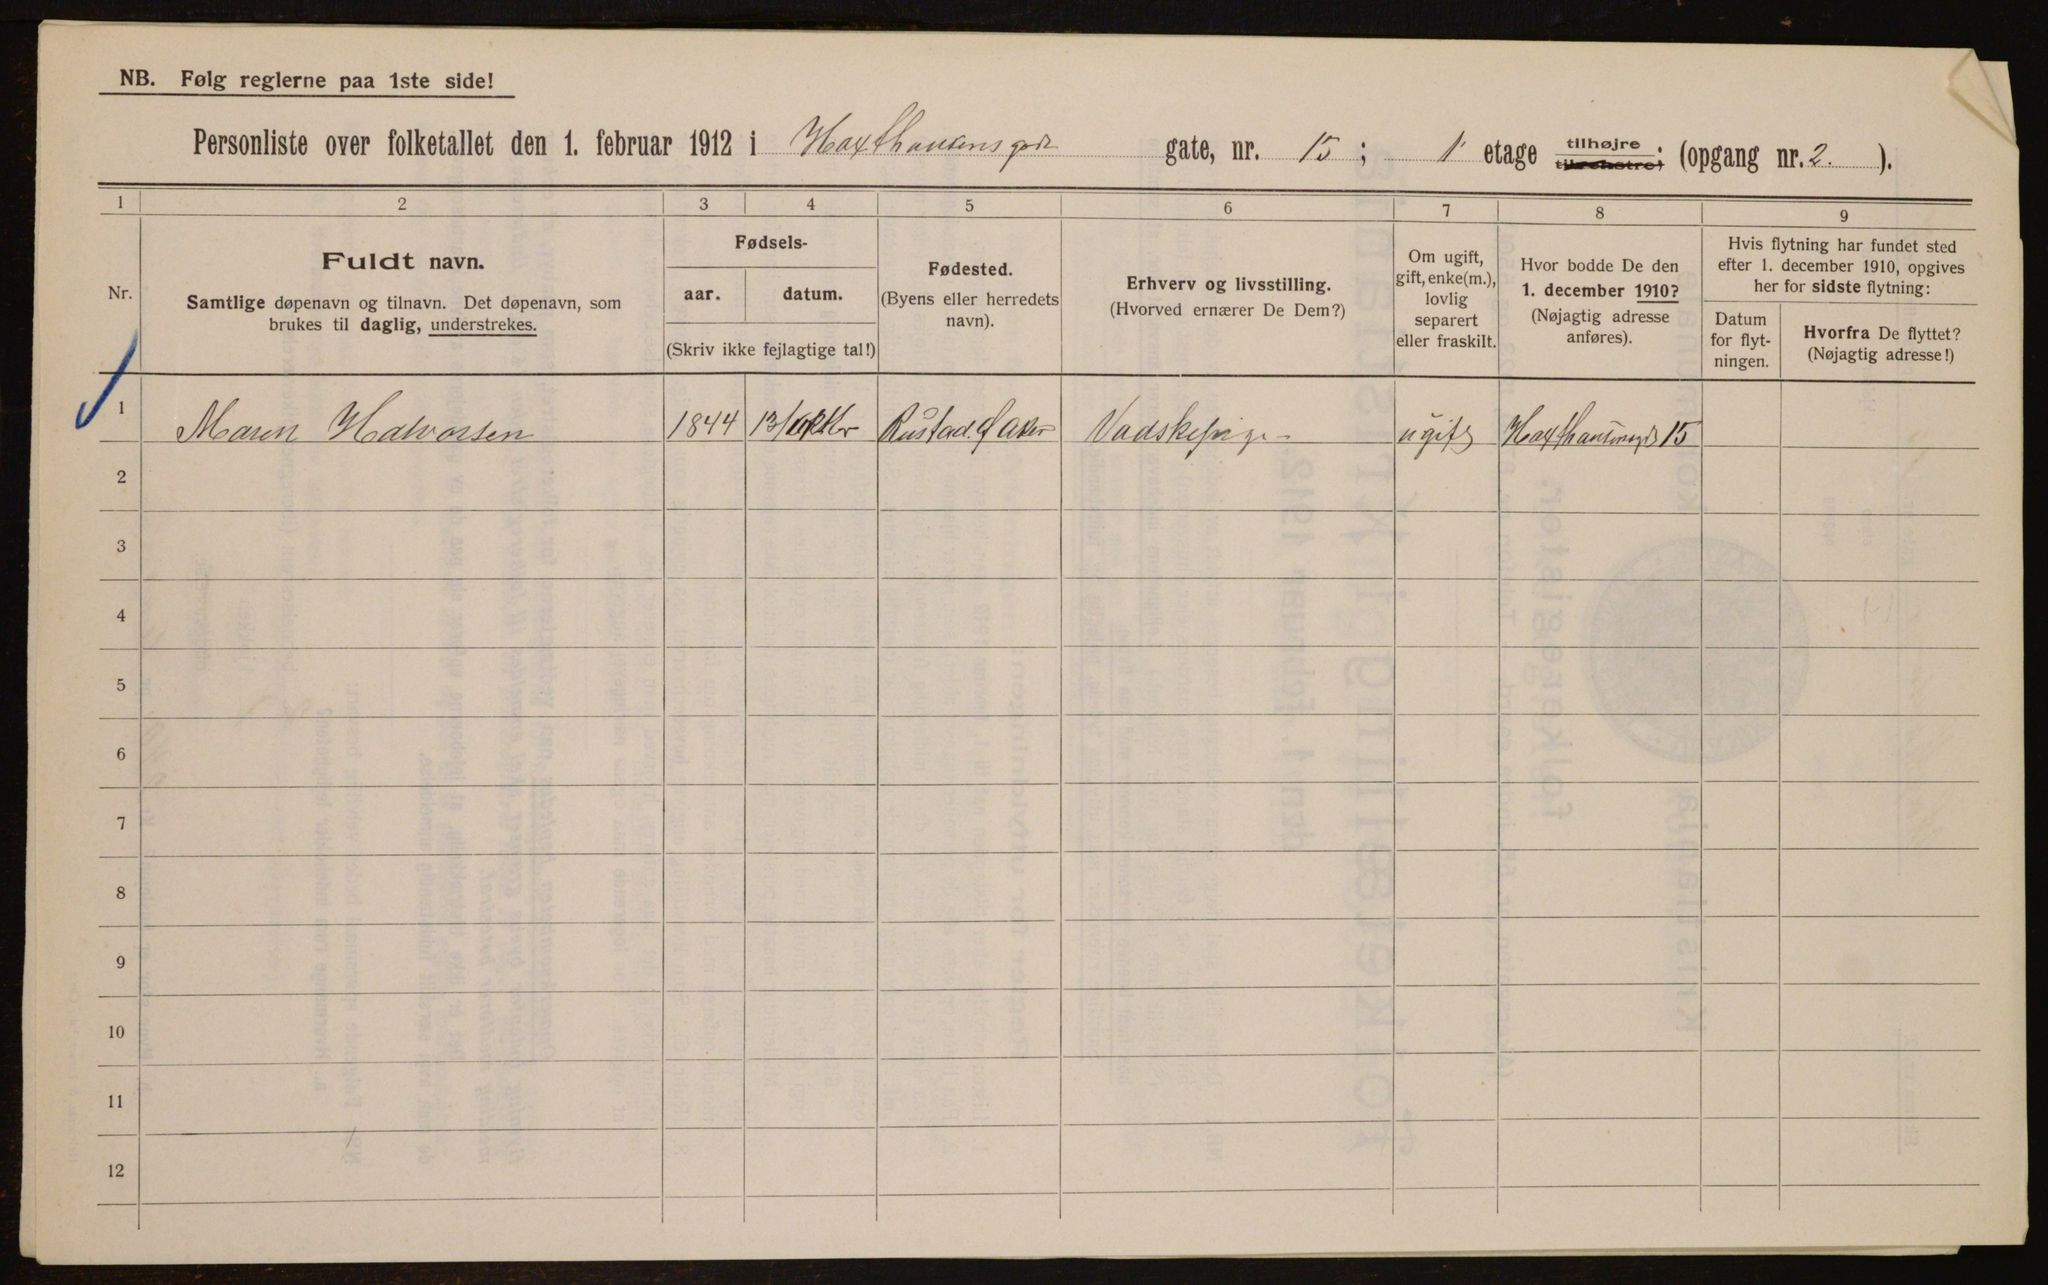 NB. Følg reglerne paa 1ste side!
Personliste over folketallet den 1. februar 1912 i Haxthausensgade gate, nr. 15 ; 1 etage tilhøjre tilvenstre, (opgang nr. 2. ).
1 2 3 4 5 6 7 8 9
Nr.
Fuldt navn.
Samtlige døpenavn og tilnavn. Det døpenavn, som
brukes til daglig, understrekes.
Fødsels-
aar. datum.
(Skriv ikke fejlagtige tal!)
Fødested.
(Byens eller herredets
navn).
Erhverv og livsstilling.
(Hvorved ernærer De Dem?)
Om ugift,
gift, enke(m.),
lovlig
separert
eller fraskilt.
Hvor bodde De den
1. december 1910?
(Nøjagtig adresse
anføres).
Hvis flytning har fundet sted
efter 1. december 1910, opgives
her for sidste flytning:
Datum
for flyt-
ningen.
Hvorfra De flyttet?
(Nøjagtig adresse!)
1 Maren Halvorsen 1844 13/ Rustad Aker ugift Haxthausensgd 15
2
3
4
5
6
7
8
9
10
11
12